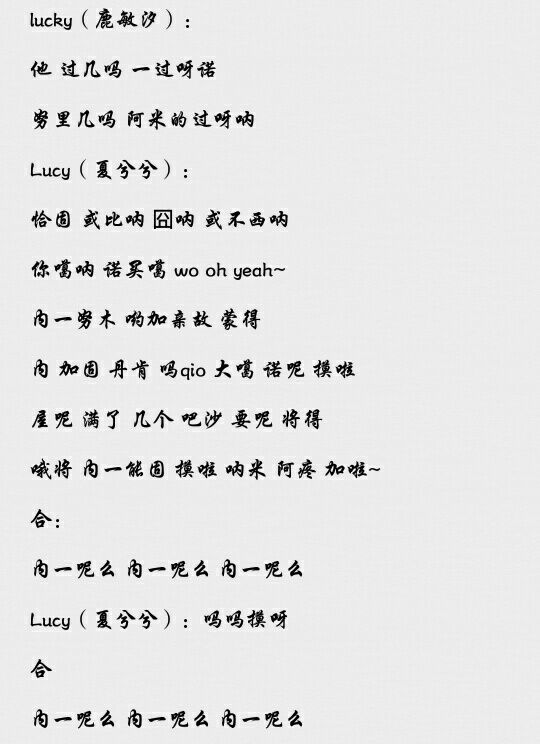 lucky（鹿敏汐）：
他 过几吗 一过呀诺
努里几吗 阿米的过呀呐
Lucy（夏兮兮）：
恰固 或比呐 囧呐 或不西呐
你噶呐 诺买噶 wo oh yeah~
内一努木 哟加亲故 蒙得
内 加固 丹肯 吗qio 大噶 诺呢 摸啦
屋呢 满了 几个 吧沙 要呢 将得
哦将 内一能固 摸啦 呐米 阿疼 加啦~
合：
内一呢么 内一呢么 内一呢么
Lucy（夏兮兮）：吗吗摸呀
合
内一呢么 内一呢么 内一呢么